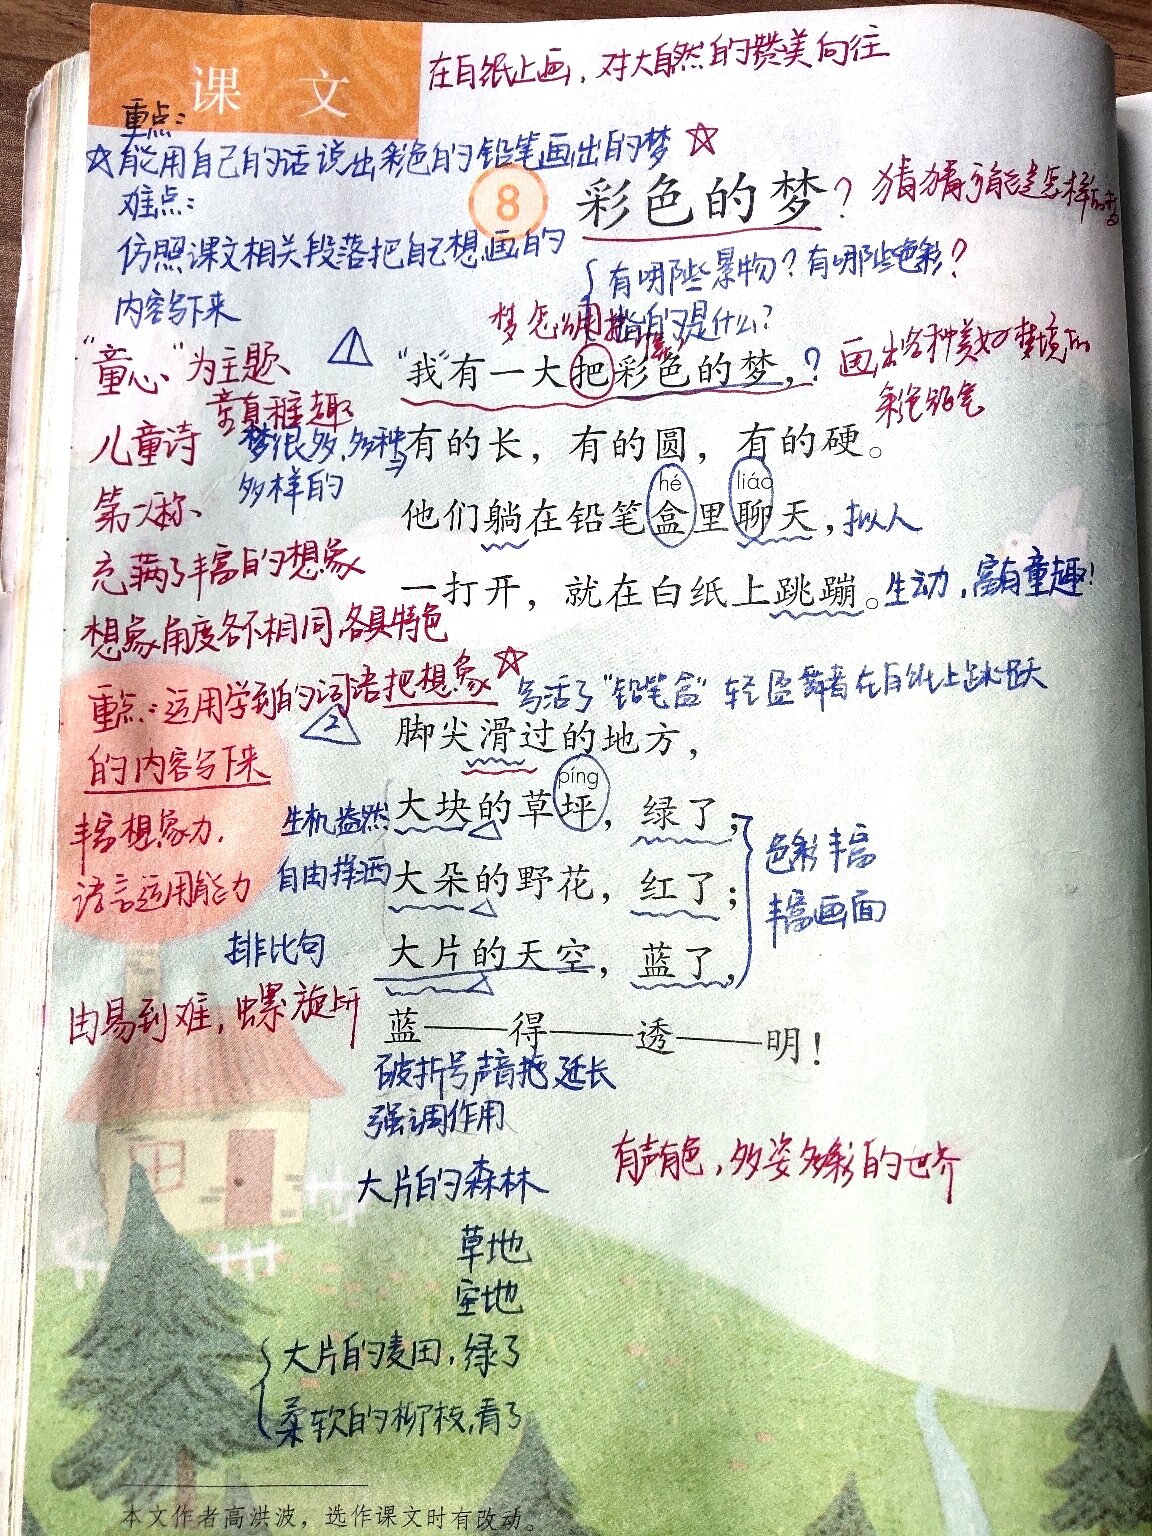 课 文
在白纸上画，对大自然的赞美向往
重点：
☆能用自己的话说出彩色的铅笔画出的梦☆
难点：
8 彩色的梦？
仿照课文相关段落把自己想画的
内容写下来
有哪些景物？有哪些色彩？
指的是什么？
梦怎么用把
"童心"为主题、
童真稚趣
"我"有一大把彩色的梦，？
画出各种美好梦境的
彩色铅笔
儿童诗
梦很多、多种
多样的
有的长，有的圆，有的硬。
第一人称、
hé liáo
他们躺在铅笔盒里聊天，拟人
充满了丰富的想象
一打开，就在白纸上跳蹦。生动，富有童趣！
想象角度各不相同，各具特色
重点：运用学到的词语把想象☆
的内容写下来
写活了"铅笔盒"轻盈舞者在白纸上跳跃
2
脚尖滑过的地方，
píng
生机盎然
大块的草坪，绿了；
丰富想象力，
语言运用能力
自由挥洒
大朵的野花，红了；
色彩丰富
丰富画面
排比句
大片的天空，蓝了，
由易到难，螺旋上升
蓝——得——透——明！
破折号声音拖延长
强调作用
有声有色，多姿多彩的世界
大片的森林
草地
空地
大片的麦田，绿了
柔软的柳枝，青了
本文作者高洪波，选作课文时有改动。